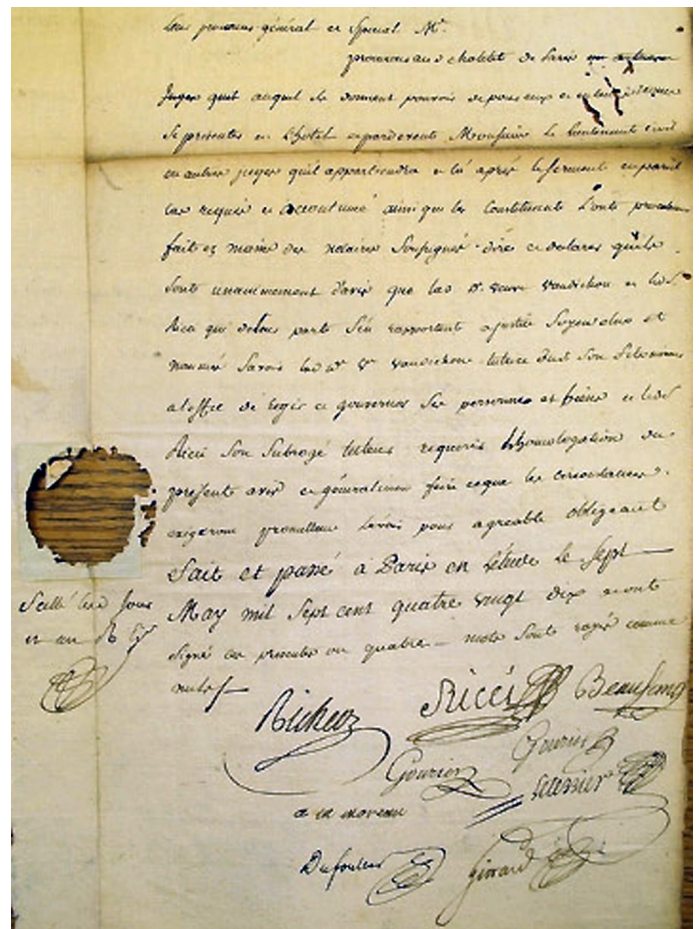 leur procureur général et special Mr.
procureur au chatelet de Paris
Juges auquel ils donnent pouvoir de pour eux et en leurs
Se presenter en L'hotel et pardevant Monsieur le Lieutenant civil
ou autres juges qu'il appartiendra et la après le serment en pareil
cas requis et accoutumé ainsi que les Constituants L'ont
fait es mains des notaires Soussignés dire et declarer qu'ils
Sont unanimement d'avis que lad. De. veuve Vaudichon et led. S.
Ricci qui de leur part S'en rapportent a justice Soyent elus et
nommés Savoir lad. De. Ve. Vaudichon tutrice dud. Son fils mineur
a l'effet de régir et gouverner Ses personnes et biens et led.
Ricci Son Subrogé tuteur requerir L'homologation du
present avis et généralement faire ce que les circonstances
exigeront promettant L'avoir pour agreable obligeant
Fait et passé à Paris en L'étude le Sept
May mil Sept cent quatre vingt dix et ont
Signé ces presentes ou quatre mots Sont rayés comme
nuls
Scellé lesd. Jour
et an
Ricci Beaufeu
Gourier
a m moreau
Dufouleur Girard